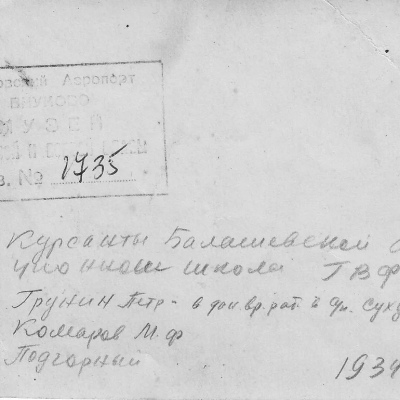 овский Аеропорт
ВНУКОВО
МУЗЕЙ
в. № 1735
Курсанты Балашевской
школа ГВФ
Грунин Петр - в
Комаров М.Ф
Подгорный
1934